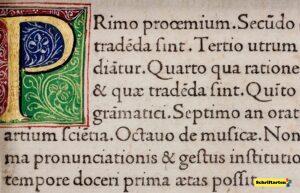 PRimo procœmium. Secũdo
tradẽda sint. Tertio utrum
diãtur. Quarto qua ratione
& quæ tradẽda sint. Quĩto
grãmatici. Septimo an orat
artium sciẽtia. Octauo de musicæ. Non
ma pronunciationis & gestus institutio
tempore doceri prima ætas possit.
Schriftarten